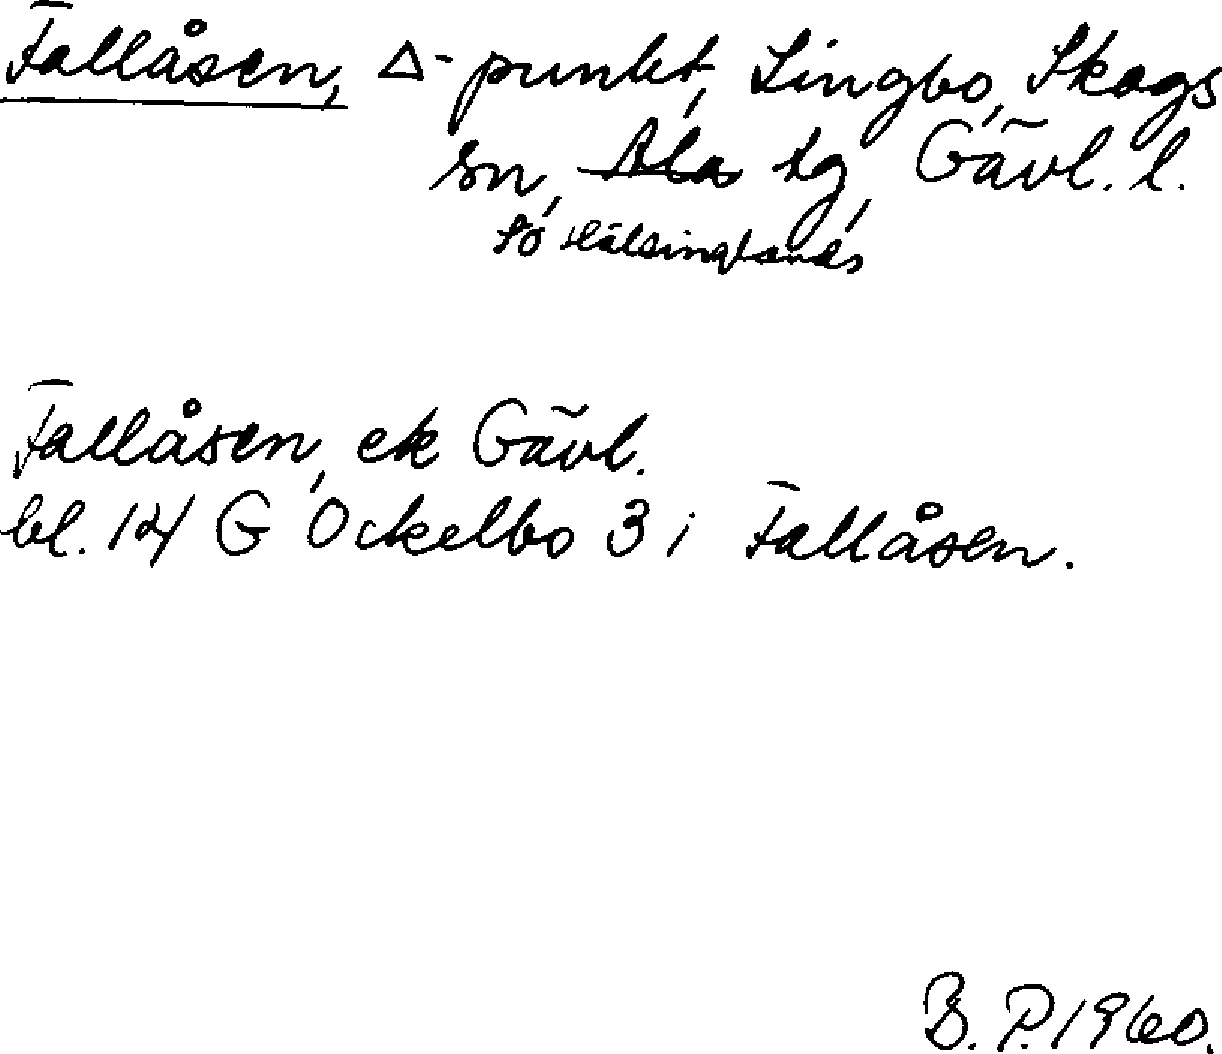 Fallåsen, △-punkt, Lingbo, Skogs
sn, Ala tg, Gävl. l.
sö Hälsinglands
Fallåsen, ek Gävl.
bl. 14 G Ockelbo 3 i Fallåsen.
B. P. 1960.